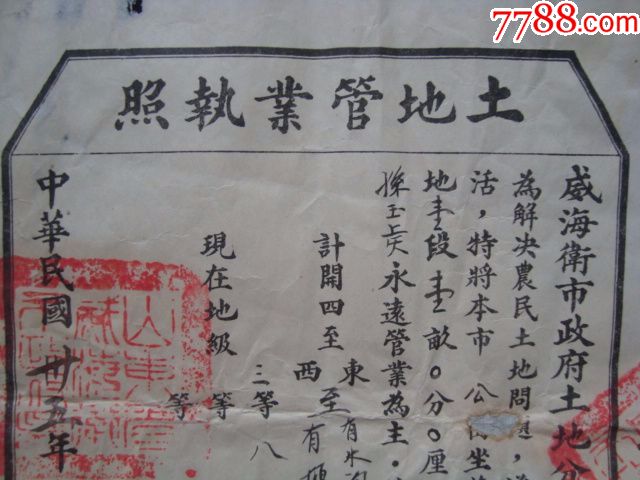 7788.com
土地管業執照
威海衛市政府土地
為解决農民土地問題,
活,特將本市 公 坐
地壹段壹畝〇分〇厘
孫玉 永遠管業為主.
計開四至 東至有水
西至有
現在地級 三等八
等 等
中華民國卅五年